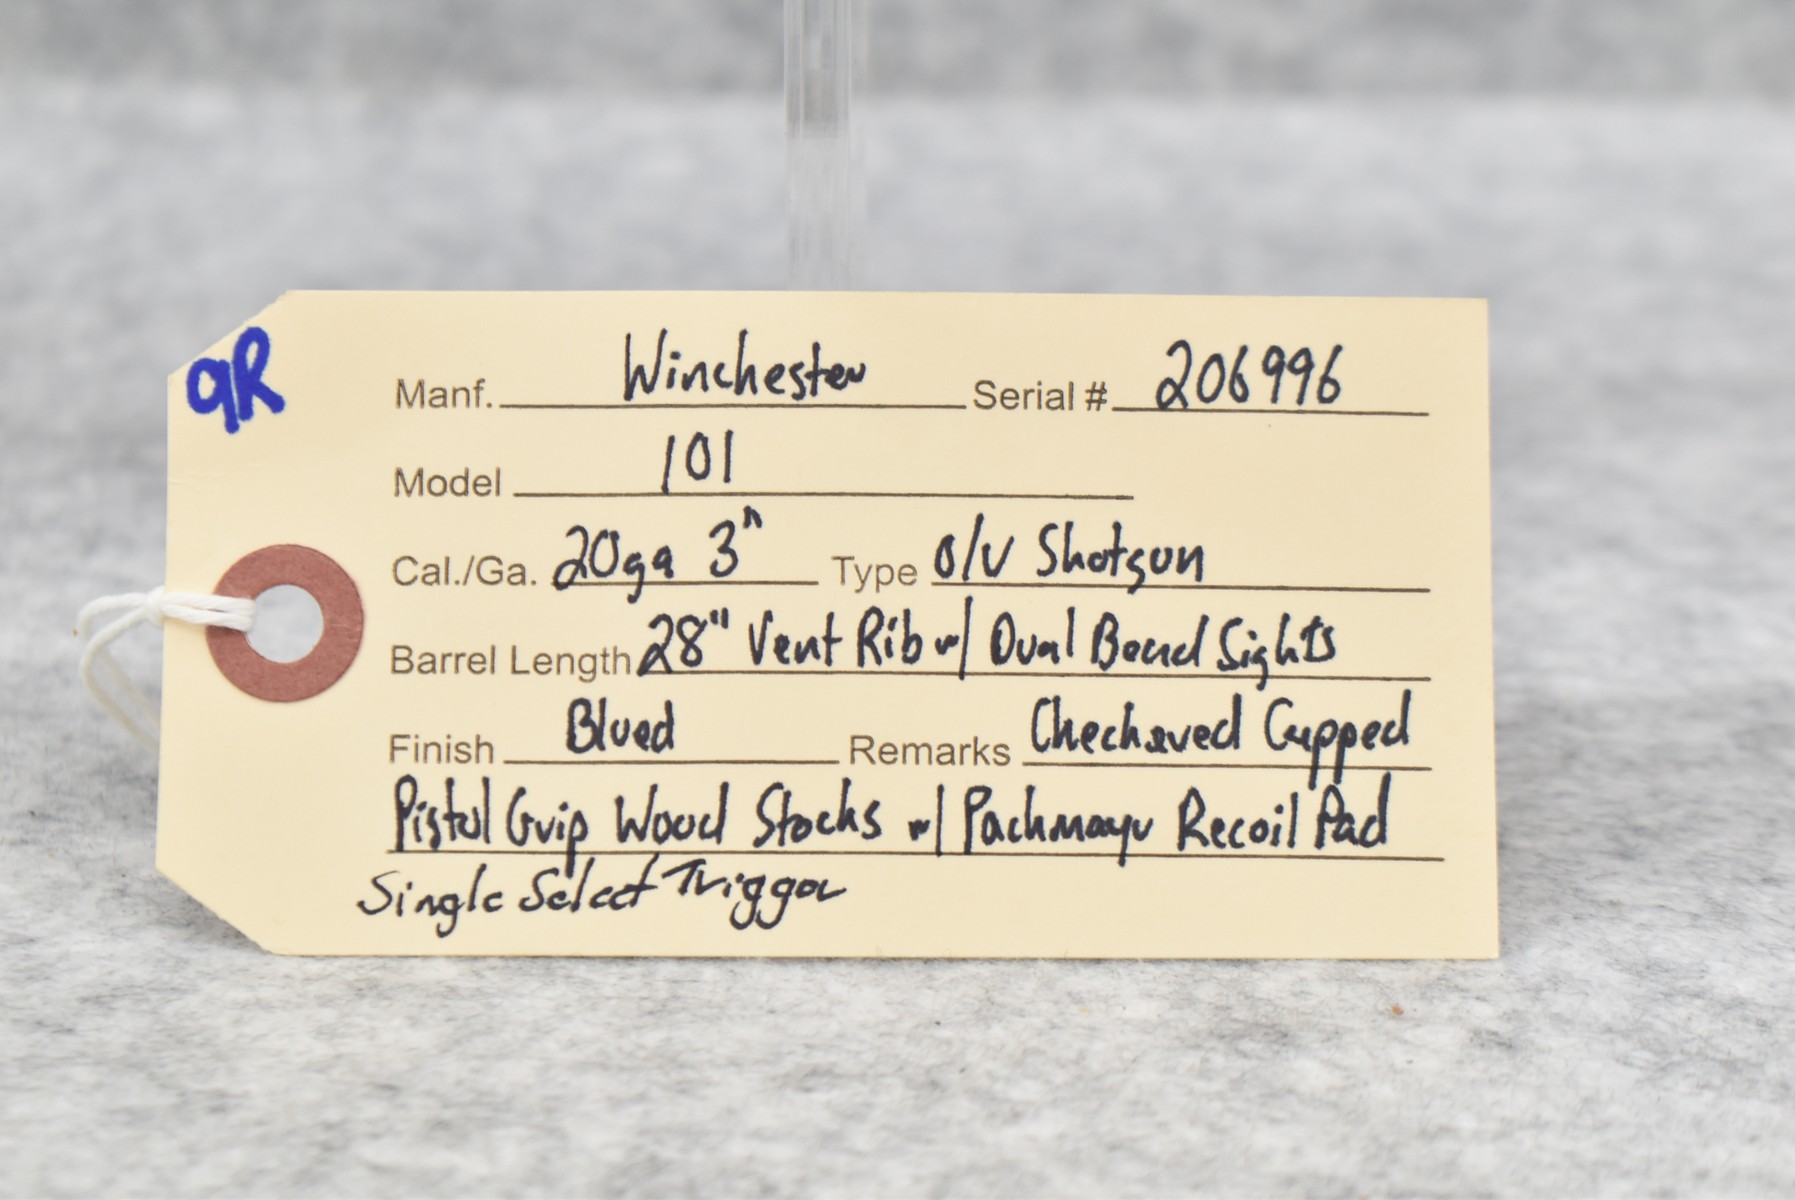 9R
Manf. Winchester Serial # 206996
Model 101
Cal./Ga. 20ga 3" Type O/U Shotgun
Barrel Length 28" Vent Rib w/ Dual Bead Sights
Finish Blued Remarks Checkered Capped
Pistol Grip Wood Stocks w/ Pachmayr Recoil Pad
Single Select Trigger